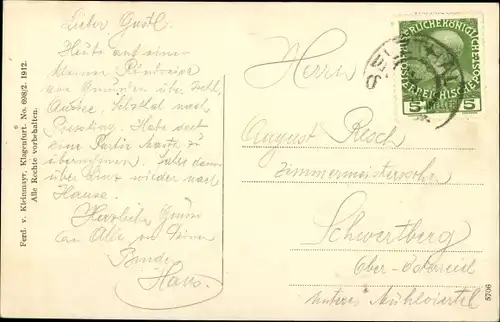 Lieber Gustl.
Heute auf einer
kleinen Rundreise
von Gmunden über Ischl,
Aussee, Selzthal nach
Habe dort
eine Partie
zu
übernehmen. Fahre dann
über Linz wieder nach
Hause.
Herzliche Grüsse
an Alle von Deinem
Bruder
Hans.
Ferd. v. Kleinmayr, Klagenfurt. No. 698/2. 1912.
Alle Rechte vorbehalten.
KAISERLICHE KÖNIGLICHE
ÖSTERREICHISCHE POST
5 HELLER 5
Herrn
August Resch
Zimmermeisterssohn
Schwertberg
Ober-Österreich
unteres Mühlviertel
5706